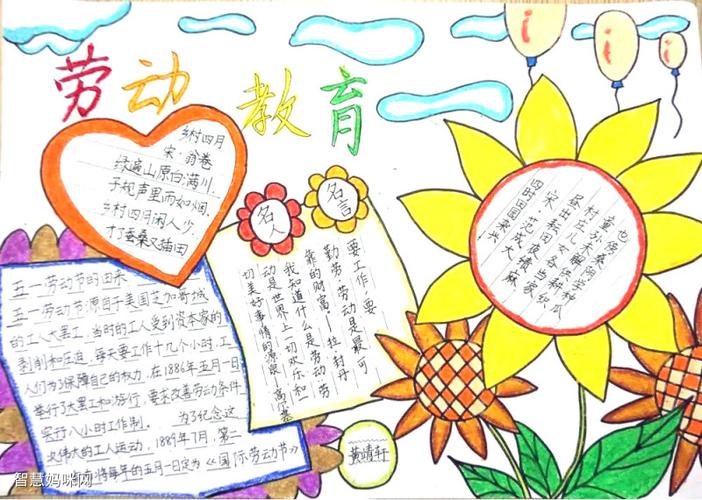 劳动教育
乡村四月
宋·翁卷
绿遍山原白满川,
子规声里雨如烟,
乡村四月闲人少,
蚕桑又插田
名人
名言
要工作,要
勤劳:劳动是最可
靠的财富——拉·封丹
我知道什么是劳动:劳
动是世界上一切欢乐和
切美好事情的源泉——高尔基
四时田园杂兴
宋 范成大
昼出耘田夜绩麻
村庄儿女各当家
童孙未解供耕织
也傍桑阴学种瓜
五一劳动节的由来
五一劳动节源自于美国芝加哥城
的工人大罢工,当时的工人受到资本家的
剥削和压迫,每天要工作十几个小时.工
人们为了保障自己的权力,在1886年五月一日
举行了大罢工和游行,要求改善劳动条件
实行八小时工作制. 为了纪念这
次伟大的工人运动,1889年7月,第二
将每年的五月一日定为《国际劳动节》
黄靖轩
智慧妈咪网